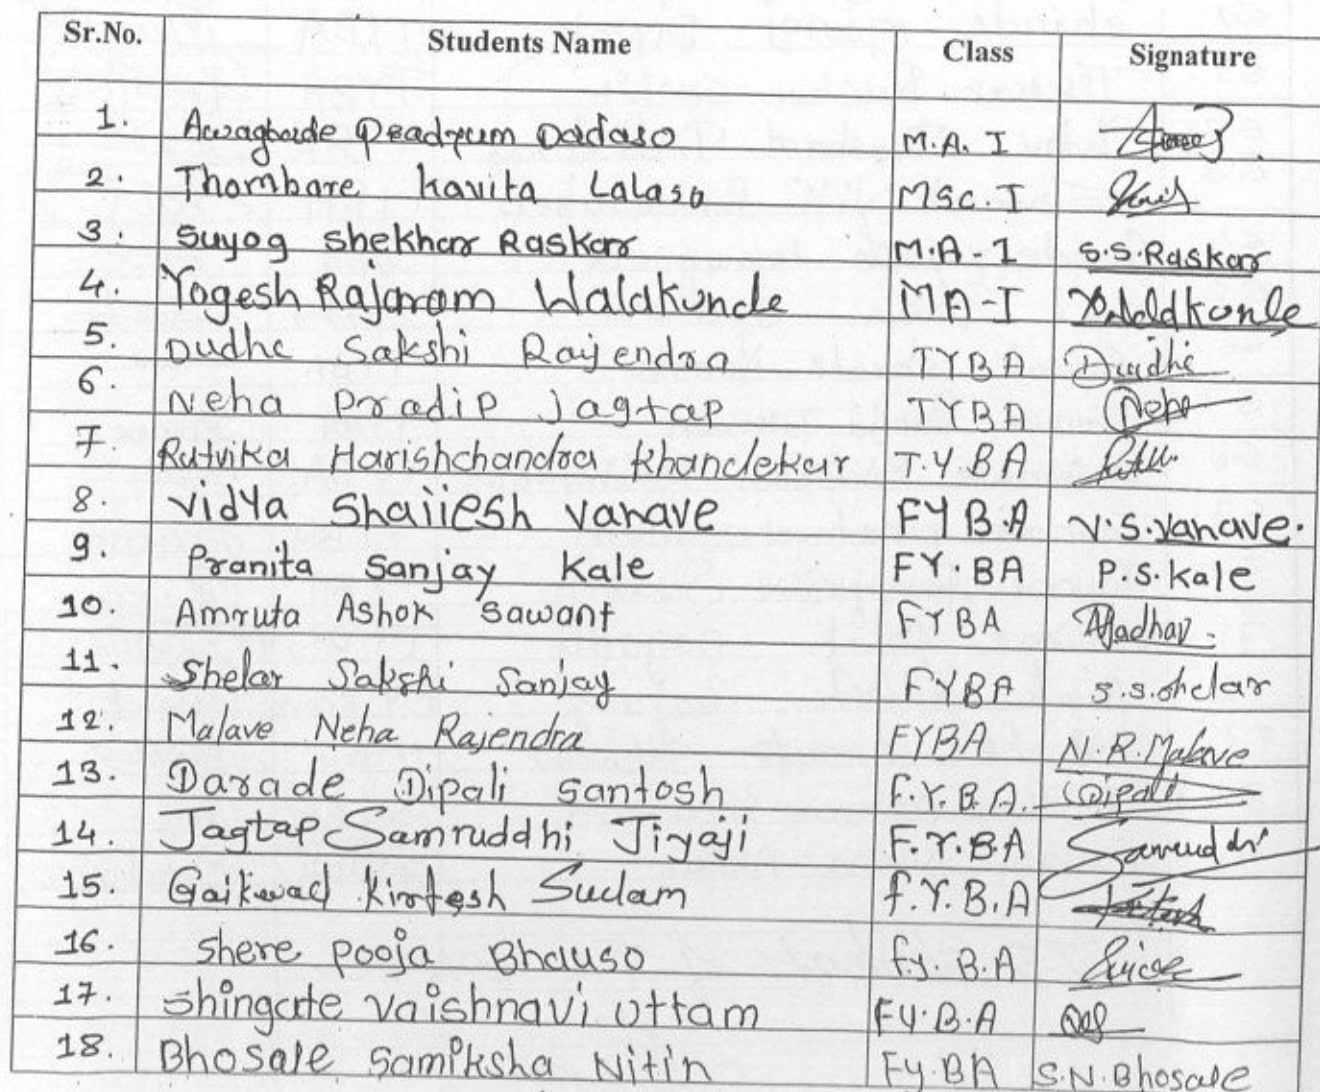 Sr.No. Students Name Class Signature
1. Awaghade Pradyum Dadaso M.A. I
2. Thombare kavita Lalaso MSc. I
3. Suyog Shekhar Raskar M.A - I S.S.Raskar
4. Yogesh Rajaram Walakunde MA-I
5. Dudhe Sakshi Rajendra TYBA Dudhe
6. Neha Pradip Jagtap TYBA Neha
7. Rutvika Harishchandra Khandekar T.Y.BA
8. vidya Shailesh vanave FYB.A V.S.vanave.
9. Pranita Sanjay Kale FY.BA P.S.kale
10. Amruta Ashok Sawant FYBA AJadhav.
11. Shelar Sakshi Sanjay FYBA S.S.shelar
12. Malave Neha Rajendra FYBA N.R.Malave
13. Darade Dipali Santosh F.Y.B.A. Dipali
14. Jagtap Samruddhi Jiyaji F.Y.B.A Samruddhi
15. Gaikwad Kirtesh Sudam F.Y.B.A
16. Shere pooja Bhauso F.y.B.A
17. Shingate vaishnavi uttam F.Y.B.A
18. Bhosale Samiksha Nitin Fy.BA S.N.Bhosale